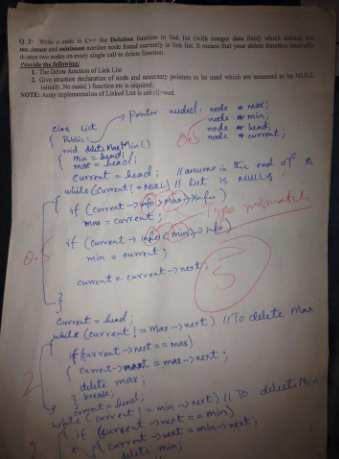 Q. 2: Write a code in C++ for Deletion function in link list (with integer data field) which deletes the
maximum and minimum number node found currently in link list. It means that your delete function basically
deletes two nodes on every single call to delete function.
Provide the following:
1. The Delete function of Link List
2. Give structure declaration of node and necessary pointers to be used which are assumed to be NULL
initially. No main( ) function etc is required.
NOTE: Array implementation of Linked List is not allowed.
Pointer needed: node * max;
node * min;
node * head;
node * current;
0.5
class list
{ Public:
void deleteMaxMin()
{ min = head;
max = head;
current = head; // assume in the end of a
while (current != NULL) // list is NULL.
{
if (current -> info > max -> info)
max = current;
if (current -> info < min -> info)
min = current;
Type mismatch
0.5
current = current -> next;
}
5
current = head;
while (current != max -> next) // To delete Max
{
if (current -> next == max)
{ current -> next = max -> next;
delete max;
break;
}
2
current = head;
while (current != min -> next) // To delete Min
{ if (current -> next == min)
{ current -> next = min -> next;
delete min;